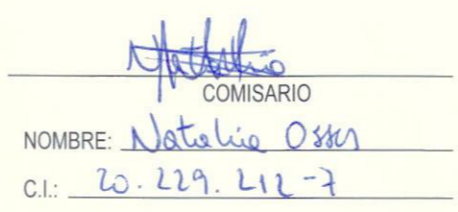 COMISARIO
NOMBRE: Natalia Osses
C.I.: 20.229.212-7